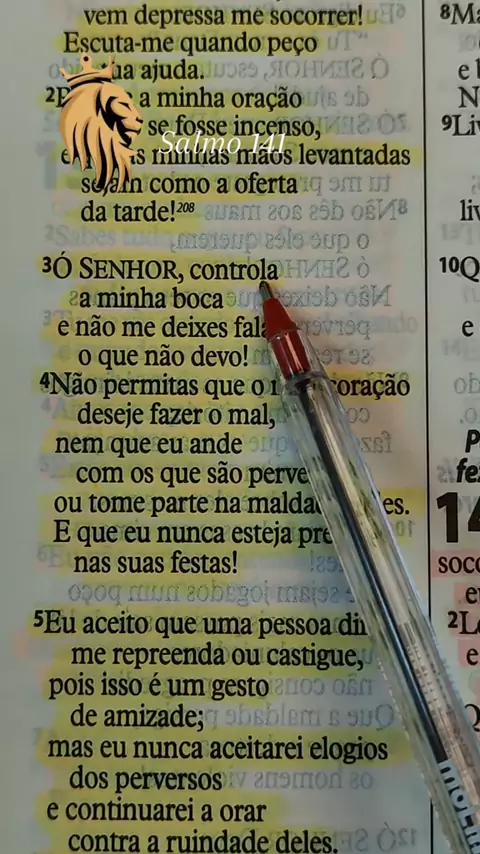 vem depressa me socorrer!
Escuta-me quando peço
a ajuda.
2 a minha oração
se fosse incenso,
Salmo 141
minhas mãos levantadas
sejam como a oferta
da tarde!208
3Ó SENHOR, controla
a minha boca
e não me deixes fal
o que não devo!
4Não permitas que o coração
deseje fazer o mal,
nem que eu ande
com os que são perve
ou tome parte na malda es.
E que eu nunca esteja pre
nas suas festas!
5Eu aceito que uma pessoa di
me repreenda ou castigue,
pois isso é um gesto
de amizade;
mas eu nunca aceitarei elogios
dos perversos
e continuarei a orar
contra a ruindade deles.
8Ma
e b
N
9Liv
liv
10Q
e
P
fe
14
soc
e
2L
e
Q